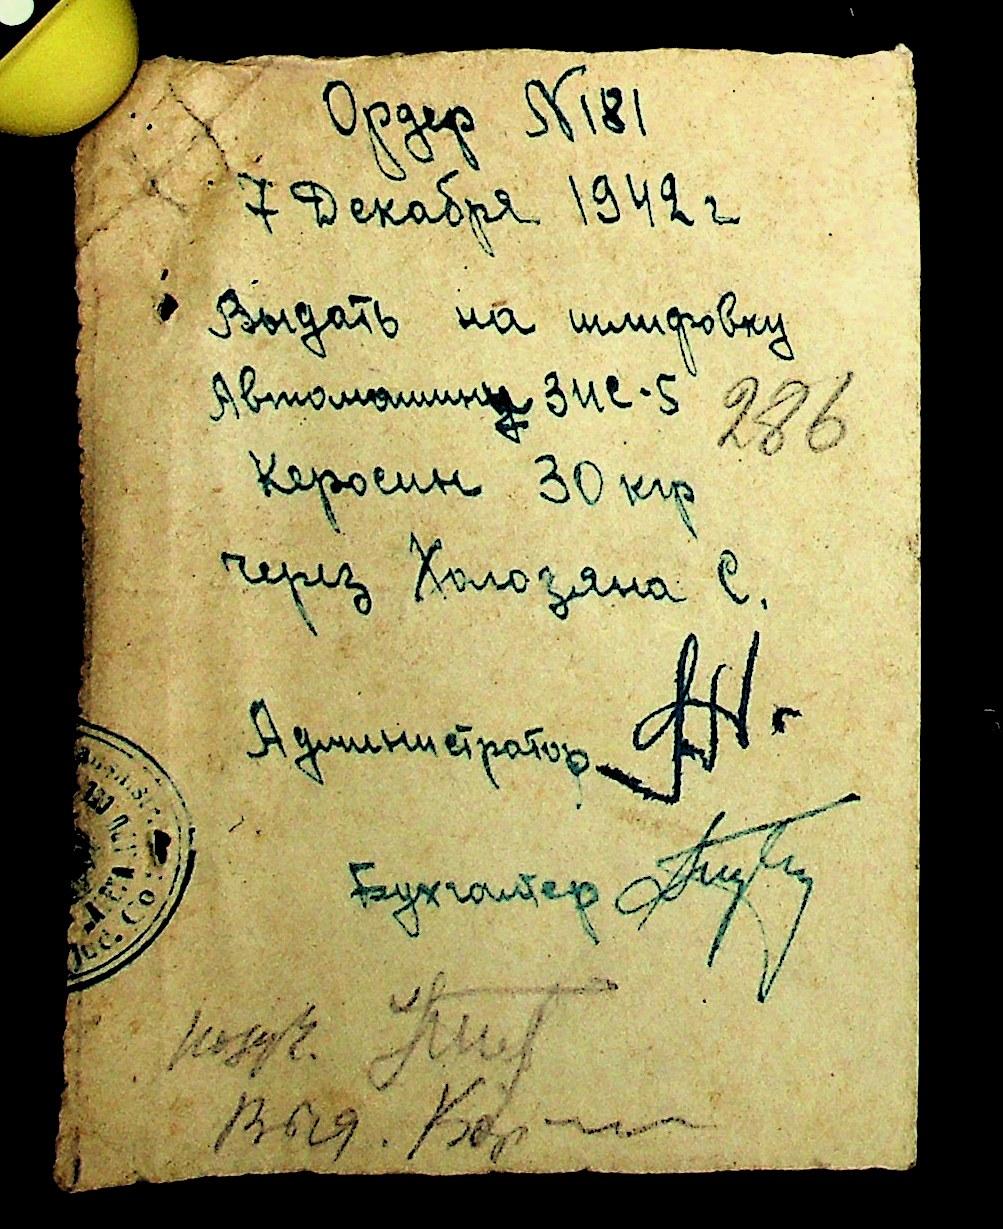 Ордер N 181
7 Декабря 1942 г
Выдать на шлифовку
Автомашины ЗИС-5
286
Керосин 30 кгр
через Холозяна С.
Администратор
Бухгалтер
Выд.